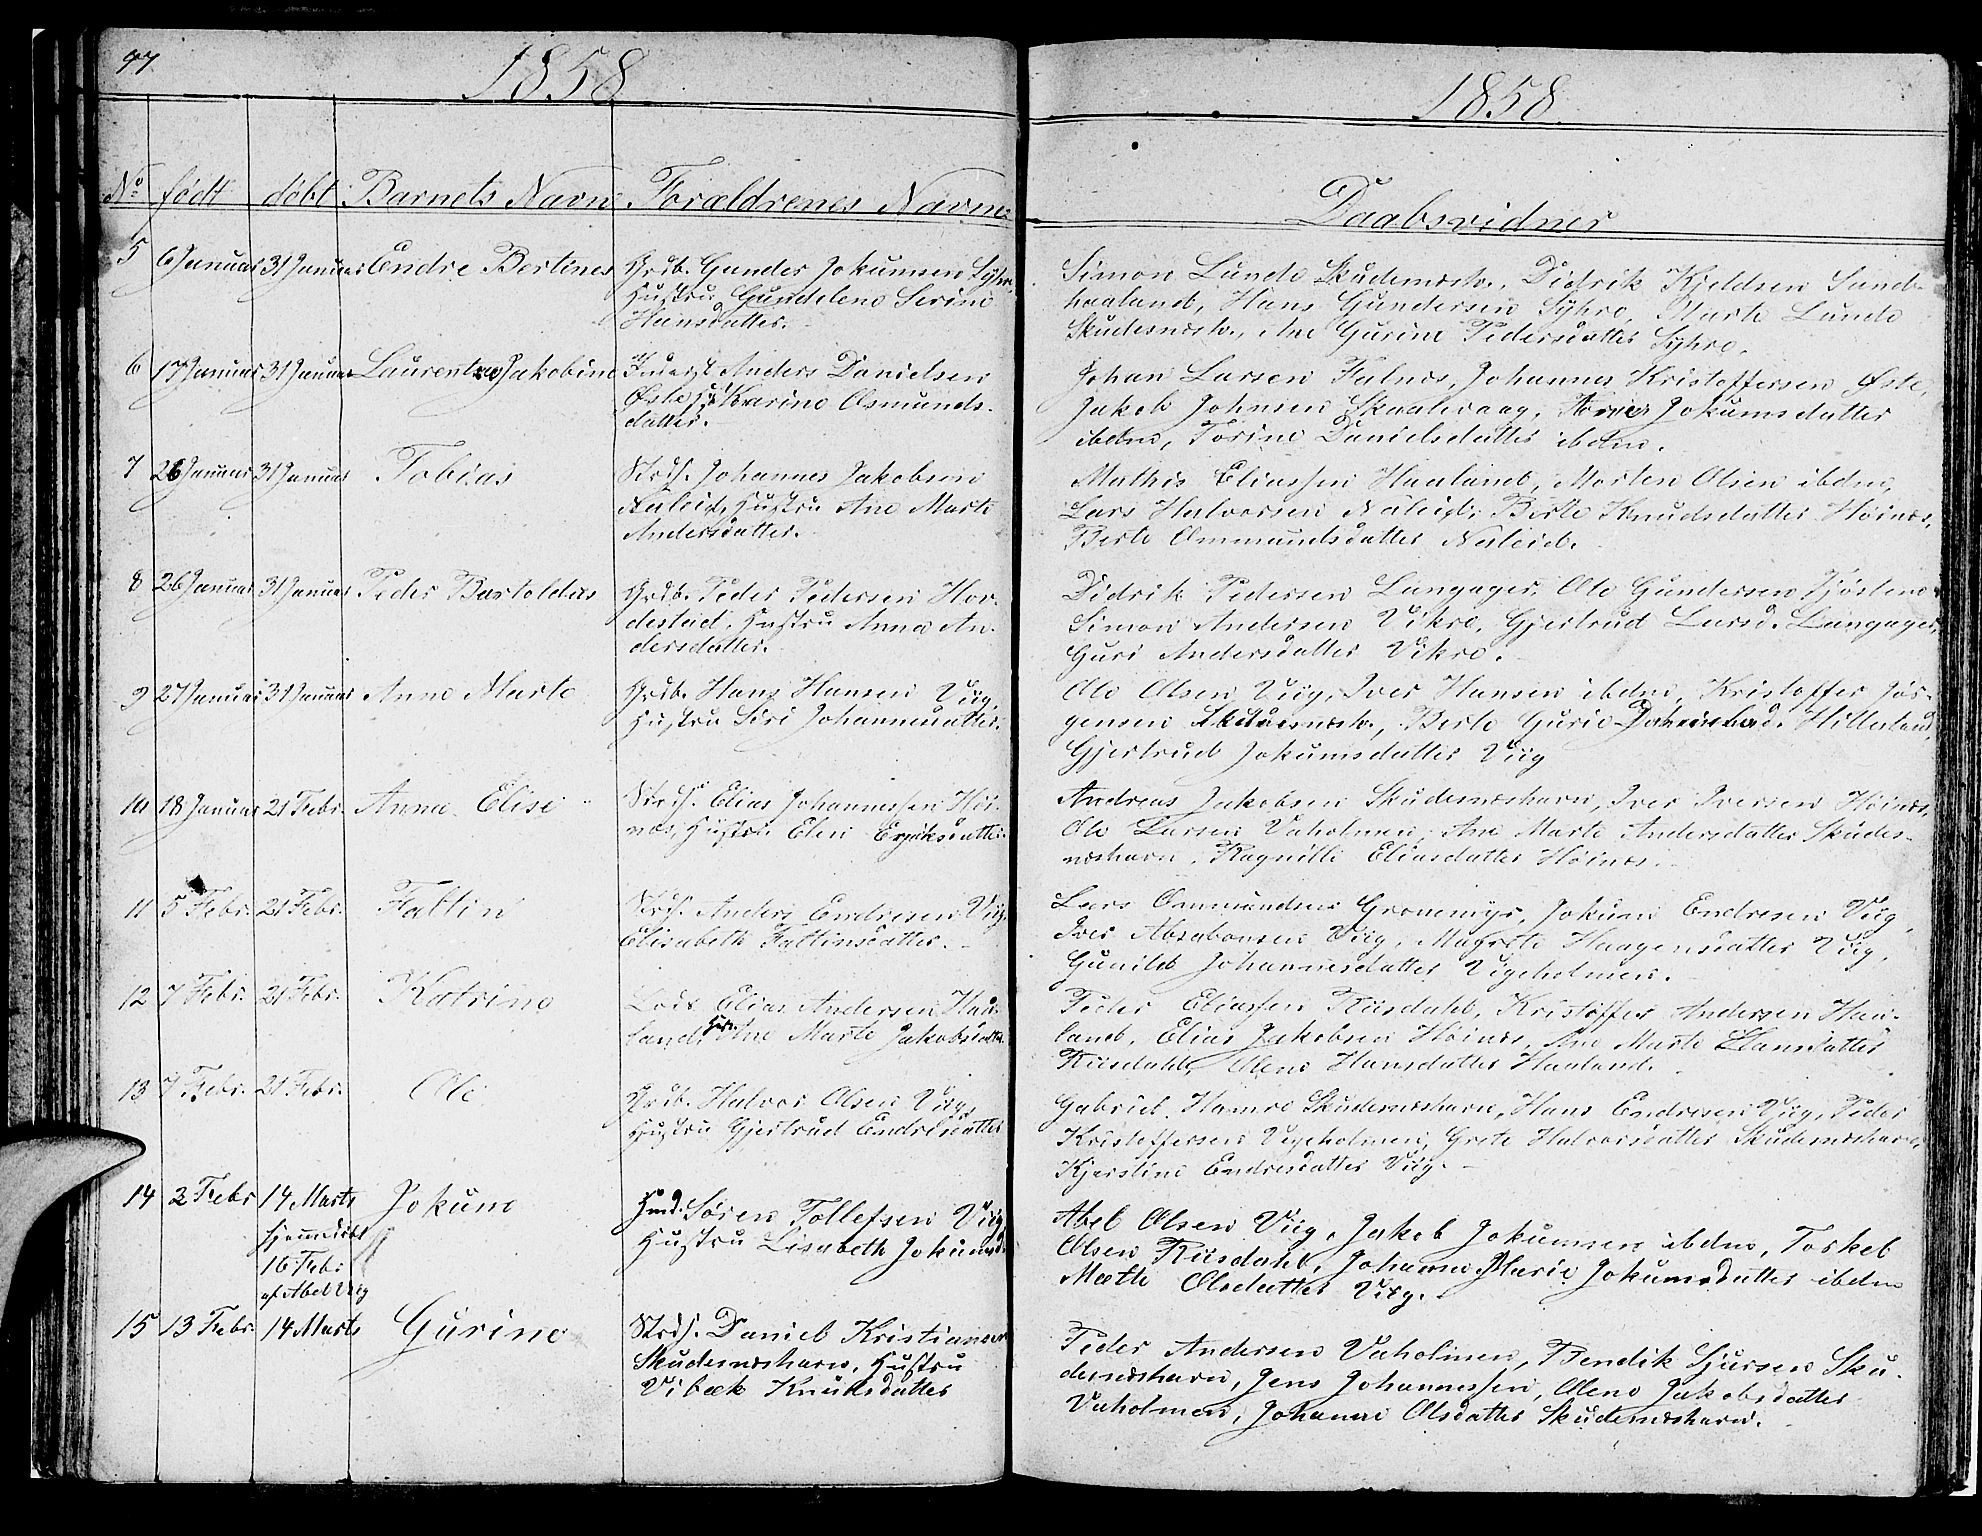 97.
1858
No født døbt Barnets Navn Forældrenes Navne
5 6 Januar 31 Januar Endre Bertines Grdb. Gunder Jokumsen Syhre,
Hustru Gundelene Serine
Hansdatter.
6 17 Januar 31 Januar Laurentze Jakobine Inderst Anders Danielsen
Øste, Karine Osmunds-
datter.
7 26 Januar 31 Januar Tobias Strds. Johannes Jakobsen
Nuleid, Hustru Ane Marte
Andersdatter.
8 26 Januar 31 Januar Peder Bartoldus Grdb. Peder Pedersen Hov-
desteid, Hustru Anna An-
dersdatter.
9 27 Januar 31 Januar Anne Marte Grdb. Hans Hansen Viig,
Hustru Siri Johannesdatter.
10 18 Januar 21 Febr. Anna Elise Strds. Elias Johannessen Høi-
næs, Hustru Elen Eriksdatter.
11 5 Febr. 21 Febr. Faltin Strds. Anders Endresen Viig,
Elisabeth Faltinsdatter.
12 7 Febr. 21 Febr. Katrine Elias Andersen Haa-
land, Hust. Ane Marte Jakobsdatter
13 7 Febr. 21 Febr. Ole Grdb. Halvor Olsen Viig,
Hustru Gjertrud Endresdatter
14 2 Febr 14 Marts Jokum Hmd. Søren Tollefsen Viig
hjemmedøbt Hustru Lisabeth Jokumsd
16 Febr
af Abel Viig
15 13 Febr. 14 Marts Gurine Strds. Daniel Kristiansen
Skudesnæshavn, Hustru
Vibæk Knuksdatter
1858.
Daabsvidner
Simon Lunde Skudesnæsh., Didrik Kjeldsen Sand-
haaland, Hans Gundersen Syhre, Marte Lunde
Skudesnæsh., Ane Gurine Pedersdatter Syhre.
Johan Larsen Falnæs, Johannes Kristoffersen Øste,
Jakob Johnsen Skaalevaag, Jokumsdatter
ibdm, Torine Danielsdatter ibdm.
Mathis Eliassen Haaland, Morten Olsen ibdm,
Lars Halvorsen Nuleid, Birte Knudsdatter Høinæs,
Berte Ommundsdatter Nuleid.
Didrik Pedersen Langager, Ole Gundersen Tjøsteno
Simon Andersen Vikre, Gjertrud Larsd. Langager,
Guri Andersdatter Vikre.
Ole Olsen Viig, Iver Hansen ibdm, Kristoffer Jør-
gensen Skudesnæsh., Berte Gurie Hilleland,
Gjertrud Jokumsdatter Viig
Andreas Jakobsen Skudesnæshavn, Iver Iversen Høinæs,
Ole Larsen Vaholmen, Ane Marte Andersdatter Skudes-
næshavn, Ragnilli Eliasdatter Høinæs.
Lars Ommundsen Grønemyr, Jokum Endresen Viig,
Iver Absabonsen Viig, Magrete Haagensdatter Viig,
Gunild Johannesdatter Vigeholmen.
Peder Eliassen Riisdahl, Kristoffer Andersen Haa-
land, Elias Jakobsen Høinæs, Ane Marte Hansdatter
Riisdahl, Olene Hansdatter Haaland.
Gabriel Hamre Skudesnæshavn, Hans Endresen Viig, Peder
Kristoffersen Vigeholmen, Grete Halvorsdatter Skudesnæshavn,
Kjerstine Endresdatter Viig.
Abel Olsen Viig, Jakob Jokumsen ibdm, Torkel
Olsen Riisdahl, Johanne Marie Jokumsdatter ibdm
Mætte Olsdatter Viig.
Peder Andersen Vaholmen, Bendik Sjursen Sku-
desnæshavn, Jens Johannessen, Olene Jakobsdatter
Vaholmen, Johanne Olsdatter Skudesnæshavn.